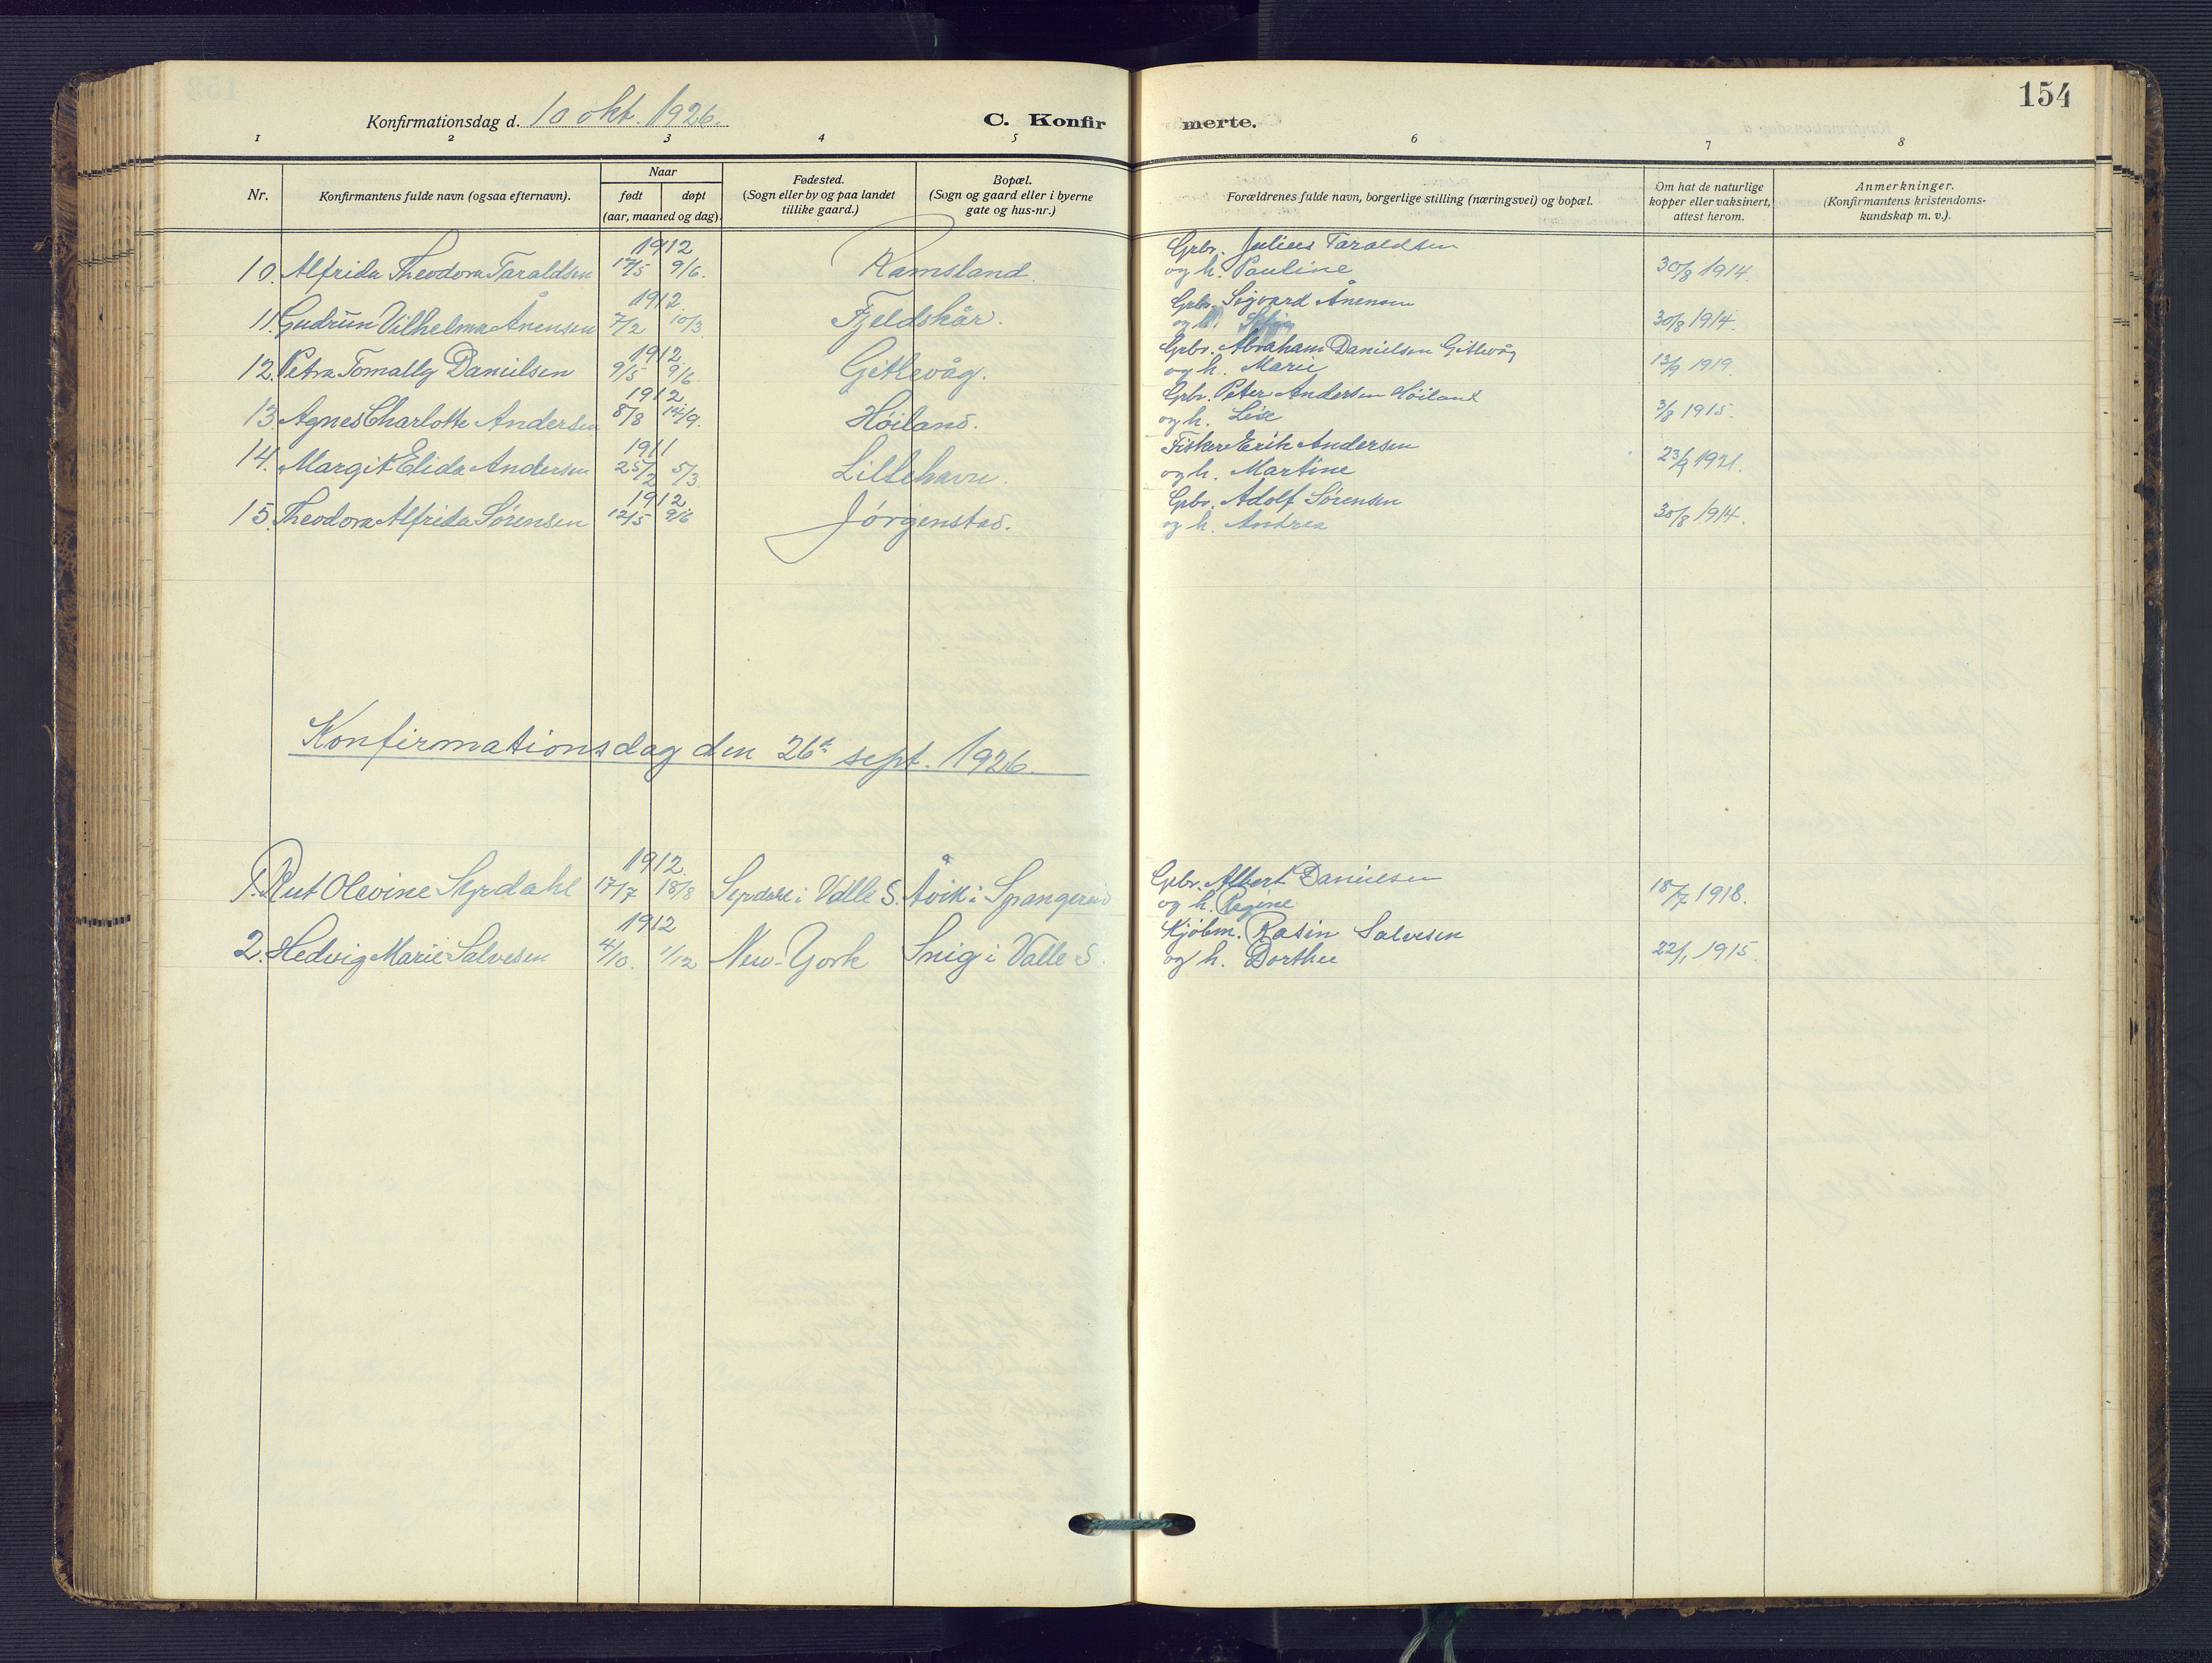 154
Konfirmationsdag d. 10 okt. 1926.
C. Konfirmerte.
1 2 3 4 5 6 7 8
Nr.
Konfirmantens fulde navn (ogsaa efternavn).
Naar
født døpt
(aar, maaned og dag).
Fødested.
(Sogn eller by og paa landet
tillike gaard.)
Bopæl.
(Sogn og gaard eller i byerne
gate og hus-nr.)
Forældrenes fulde navn, borgerlige stilling (næringsvei) og bopæl.
Om hat de naturlige
kopper eller vaksinert,
attest herom.
Anmerkninger.
(Konfirmantens kristendoms-
kundskap m. v.).
1912 Gbr. Julius Taraldsen
10. Alfrida Theodora Taraldsen 17/5 9/6. Ramsland. og h. Pauline 30/8 1914.
1912. Gbr. Sigvard Ånensen
11. Gudrun Vilhelma Ånensen 7/2 10/3 Fjeldskår. og h. 30/8 1914.
1912. Gbr. Abraham Danielsen Gitlevåg
12. Petra Tomally Danielsen 9/5 9/6. Gitlevåg. og h. Marie 13/9 1919.
1912. Gbr. Peter Andersen Höiland
13. Agnes Charlotte Andersen 8/8 14/9. Höiland. og h. Lise 3/8 1915.
1911 Fisker Erik Andersen
14. Margit Elida Andersen 25/2 5/3. Lillehavn. og h. Martine 23/9 1921.
1912 Gbr. Adolf Sörensen
15. Theodora Alfrida Sörensen 12/5 9/6 Jörgenstad. og h. Andrea 30/8 1914.
Konfirmationsdag den 26de sept. 1926.
1912. Gbr. Albert Danielsen
1. Rut Olevine Syrdahl 17/7 18/8 Syrdal i Valle S. Åvik i Spangereid og h. Regine 18/7 1918.
1912 Kjöbm. Rasin Salvesen
2. Hedvig Marie Salvesen 4/10. 1/12 New-York Snig i Valle S. og h. Dorthee 22/1 1915.